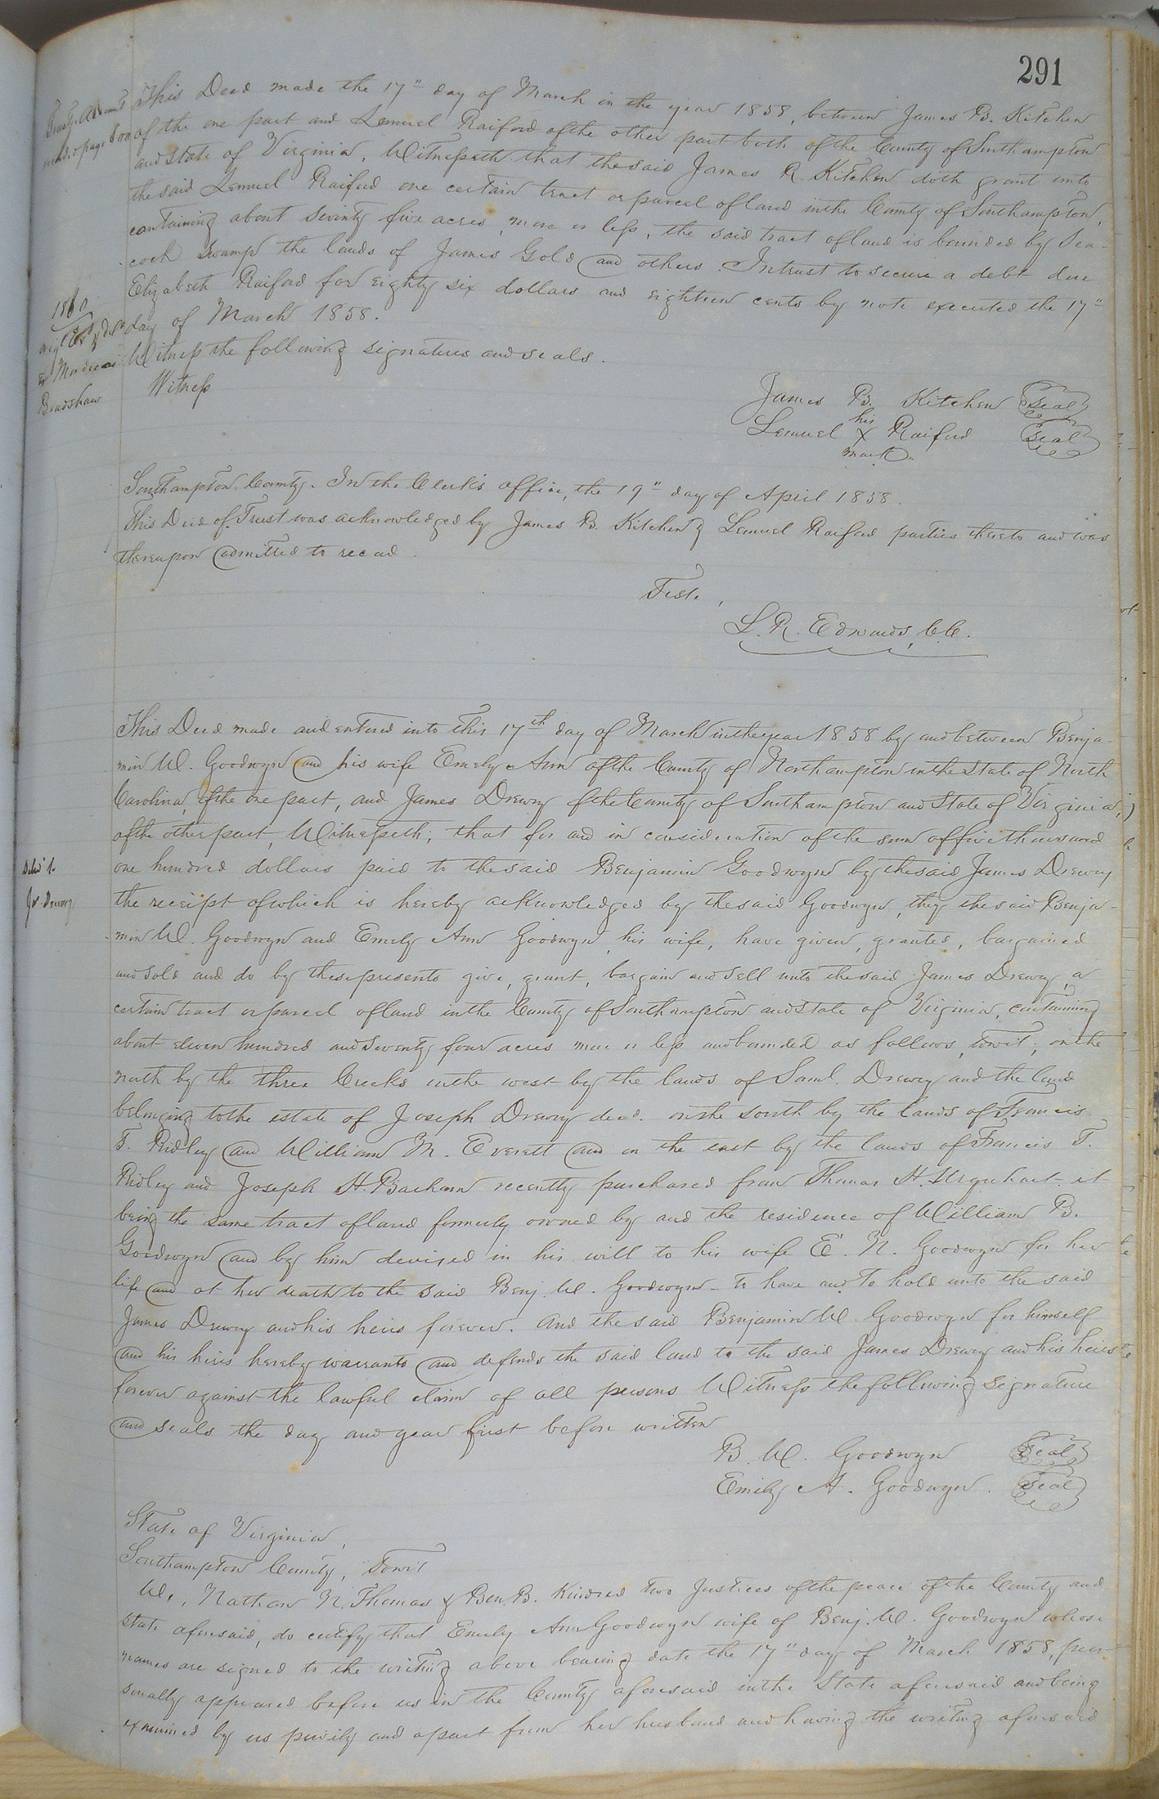 291
This Deed made the 17" day of March in the year 1858, between James B. Kitchen
of the one part and Lemuel Raiford of the other part both of the County of Southampton
and State of Virginia, Witnesseth that the said James R. Kitchen doth grant unto
the said Lemuel Raiford one certain tract or parcel of land in the County of Southampton,
containing about seventy five acres, more or less, the said tract of land is bounded by Sea-
cock Swamp the lands of James Gold and others. In trust to secure a debt due
Elizabeth Raiford for eighty six dollars and eighteen cents by note executed the 17"
day of March 1858.
Witness the following signatures and seals.
Witness
James B. Kitchen Seal
Lemuel his X mark Raiford Seal
Bradshaw
Southampton County. In the Clerk's office, the 19" day of April 1858.
This Deed of Trust was acknowledged by James B. Kitchen & Lemuel Raiford parties thereto and was
thereupon admitted to record.
Teste,
L. R. Edwards, C.C.
This Deed made and entered into this 17th day of March in the year 1858 by and between Benja-
min W. Goodwyn and his wife Emely Ann of the County of Northampton in the State of North
Carolina, of the one part, and James Drewry of the County of Southampton and State of Virginia,
of the other part, Witnesseth, that for and in consideration of the sum of five thousand
one hundred dollars paid to the said Benjamin Goodwyn by the said James Drewry
the receipt of which is hereby acknowledged by the said Goodwyn, they the said Benja-
min W. Goodwyn and Emely Ann Goodwyn his wife, have given, granted, bargained
and sold and do by these presents give, grant, bargain and sell unto the said James Drewry, a
certain tract or parcel of land in the County of Southampton and State of Virginia, containing
about eleven hundred and seventy four acres more or less and bounded as follows, towit; on the
north by the three Creeks on the west by the lands of Saml. Drewry and the land
belonging to the estate of Joseph Drewry decd. on the south by the lands of Francis
T. Ridley and William M. Everett and on the east by the lands of Francis T.
Ridley and Joseph H. Barham recently purchased from Thomas H. Urquhart it
being the same tract of land formerly owned by and the residence of William B.
Goodwyn and by him devised in his will to his wife E. N. Goodwyn for her
life and at her death to the said Benj. W. Goodwyn - To have and to hold unto the said
James Drewry and his heirs forever. And the said Benjamin W. Goodwyn for himself
and his heirs hereby warrants and defends the said land to the said James Drewry and his heirs
forever against the lawful claim of all persons Witness the following signature
and seals the day and year first before written
B. W. Goodwyn Seal
Emily A. Goodwyn. Seal
Deld. to
Js. Drewry
State of Virginia,
Southampton County, Towit
We, Nathan N. Thomas & Ben. B. Kindred two Justices of the peace of the County and
state aforesaid, do certify that Emely Ann Goodwyn wife of Benj. W. Goodwyn whose
names are signed to the writing above bearing date the 17" day of March 1858, per-
sonally appeared before us in the County aforesaid in the State aforesaid and being
examined by us privily and apart from her husband and having the writing aforesaid